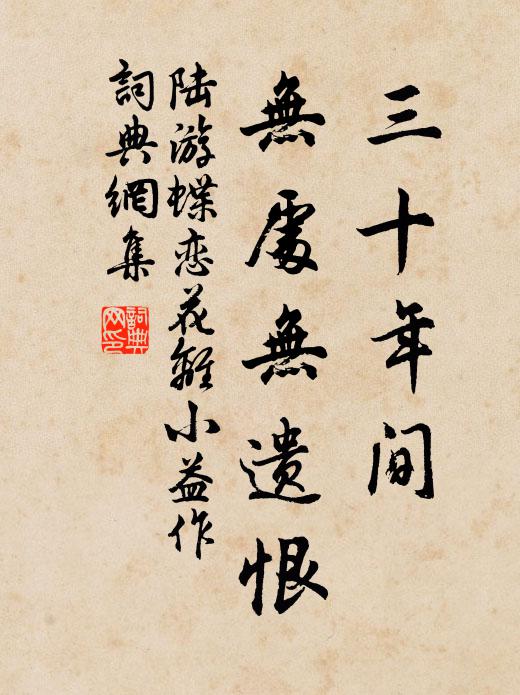 三十年间
無處無遗恨
陆游蝶恋花離小益作
詞典網集
詞典
网印